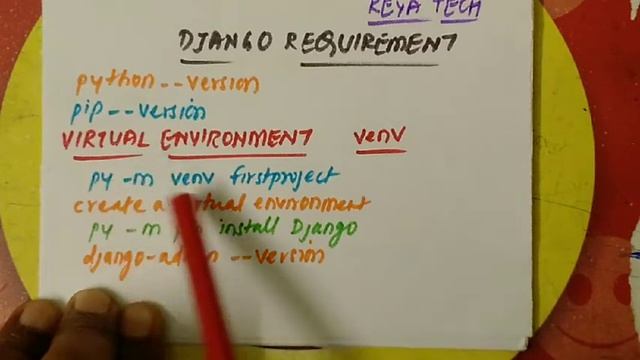 KEYA TECH
DJANGO REQUIREMENT
python --version
pip --version
VIRTUAL ENVIRONMENT venv
py -m venv firstproject
create a virtual environment
py -m install Django
django-admin --version